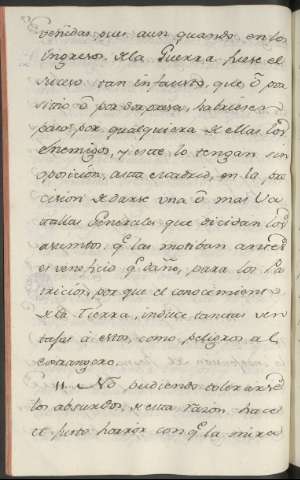 peñidas pues aun quando en los
ingresos de la Guerra fuese el
suceso tan infausto, que ó por
sitio ó por sorpresa, hubiesen
paso por qualquiera de ellas los
Enemigos, y este lo tengan sin
oposición, asta Madrid, en la pre
cision de darse una ó mas Ba
tallas Generales que decidan los
asumtos q.e las motiban antes
es veneficio q.e daño, para los Pa
tricios, por que el conocimiento
de la Tierra, induce tantas ven
tajas á estos, como peligros al
estrangero.
11. No pudiendo tolerarse
los absurdos, de esta razon, hace
el justo horror con q.e la mira